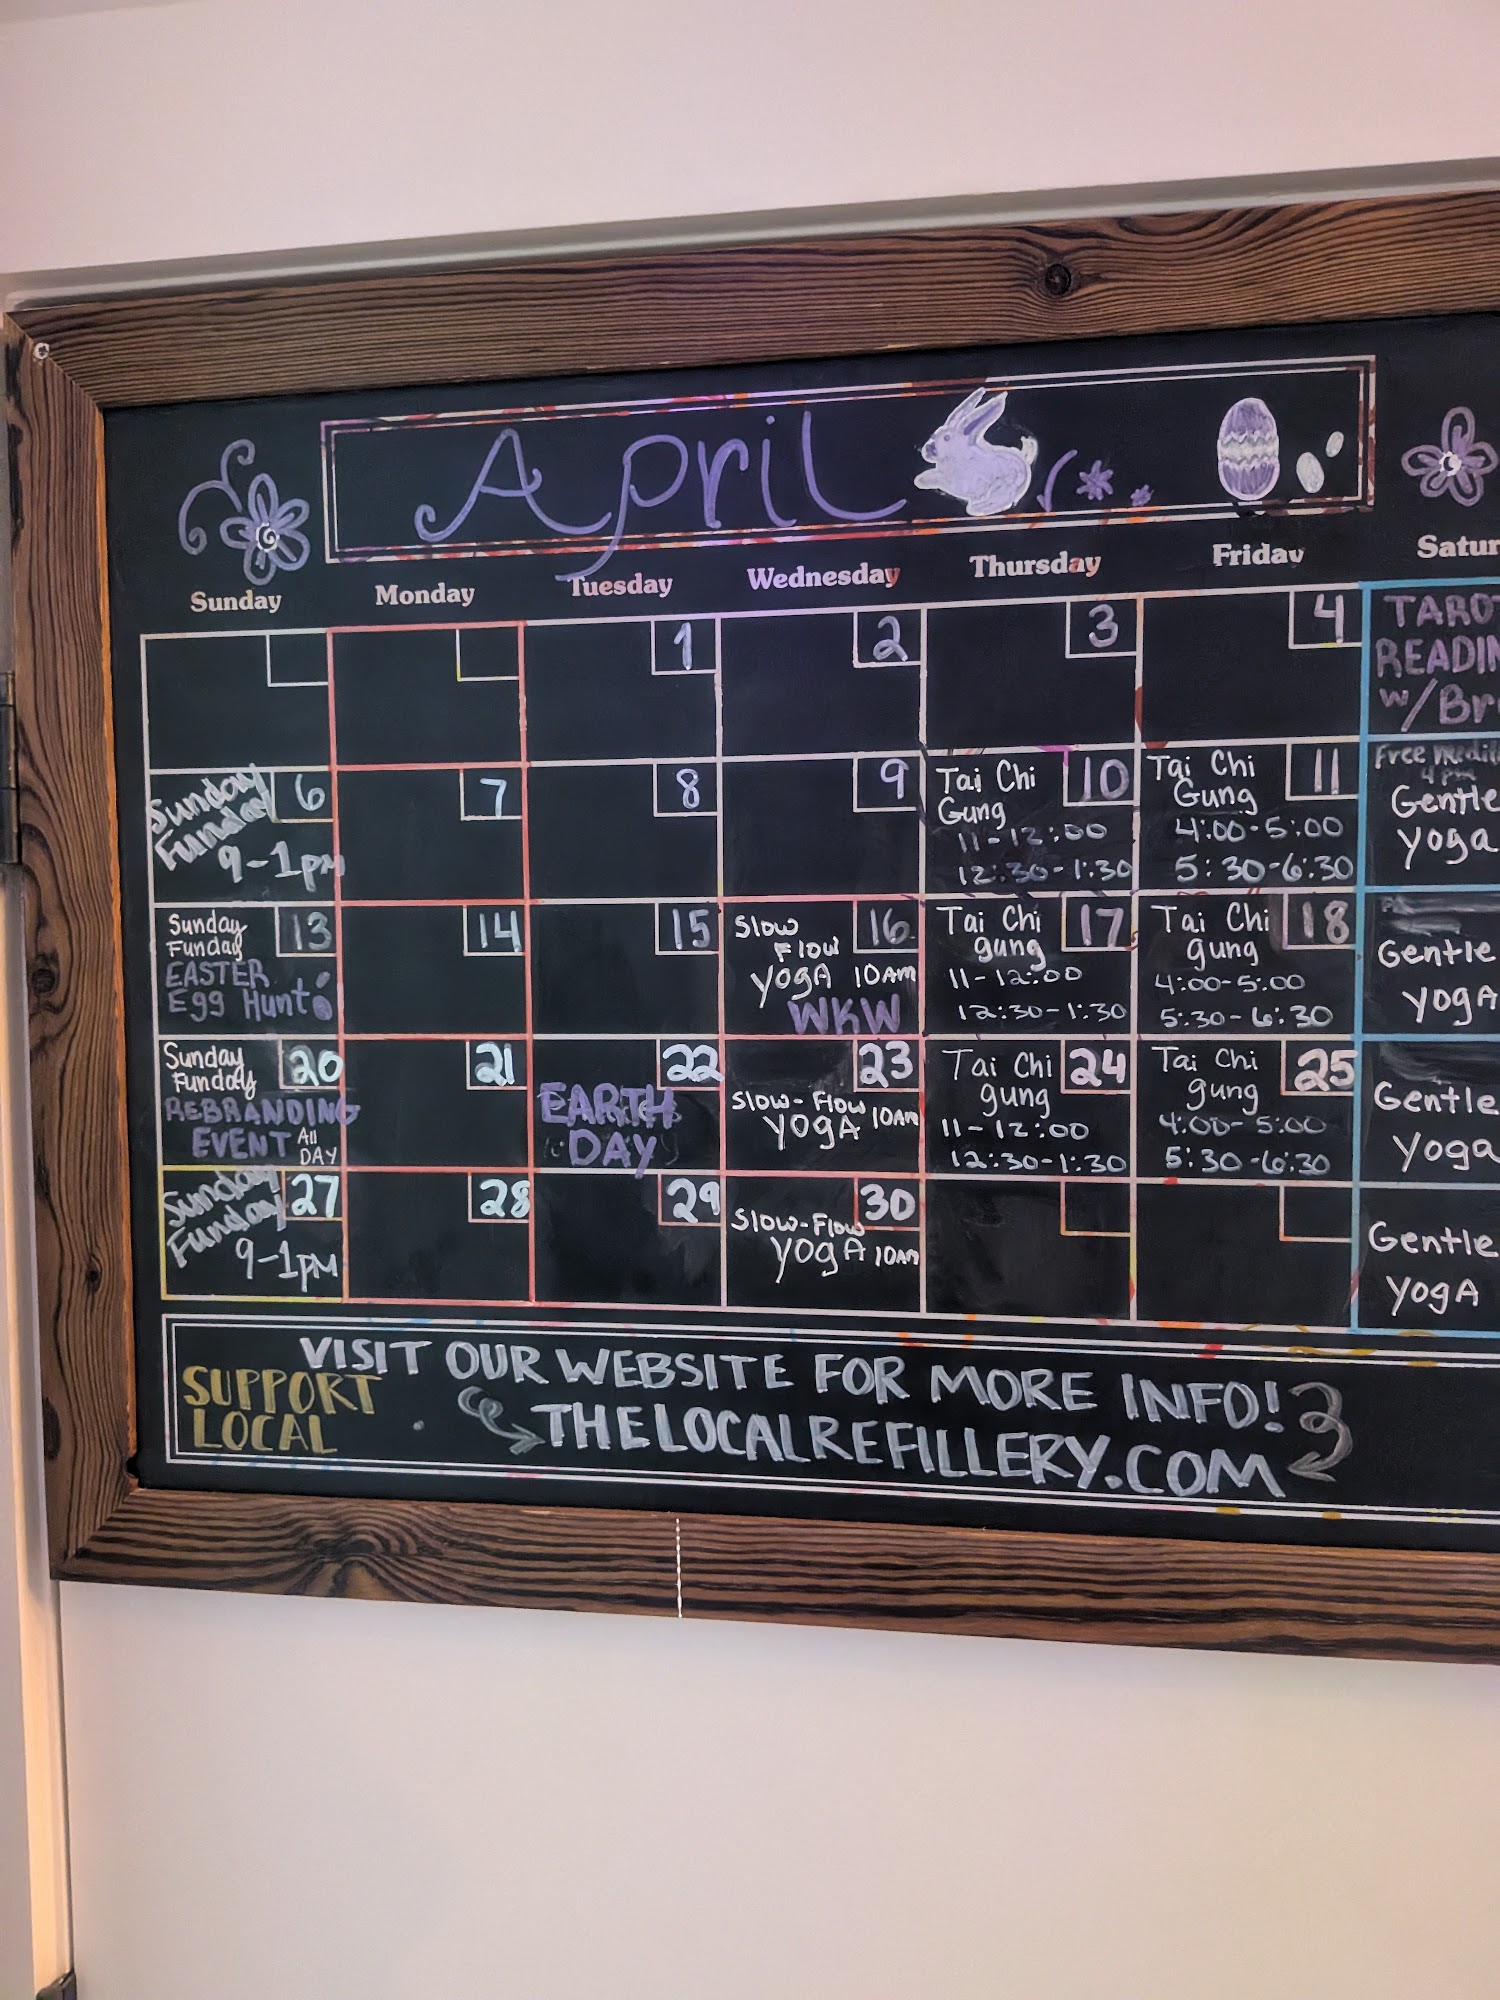 April
Sunday Monday Tuesday Wednesday Thursday Friday
1 2 3 4
READIN
w/
Sunday
Funday
9-1pm
6
7
8
9
Tai Chi
Gung
10
11-12:00
12:30-1:30
Tai Chi
Gung
11
4:00-5:00
5:30-6:30
Free
4pm
Gentle
yoga
Sunday
Funday
13
EASTER
Egg Hunt
14
15
Slow
Flow
16
yogA 10Am
WKW
Tai Chi
gung
17
11-12:00
12:30-1:30
Tai Chi
gung
18
4:00-5:00
5:30-6:30
Gentle
yogA
Sunday
Funday
20
REBRANDING
EVENT All
DAY
21
22
EARTH
DAY
23
Slow-Flow
yogA 10Am
Tai Chi
gung
24
11-12:00
12:30-1:30
Tai Chi
gung
25
4:00-5:00
5:30-6:30
Gentle
yoga
Sunday
Funday
27
9-1pm
28
29
30
Slow-Flow
yogA 10Am
Gentle
yogA
VISIT OUR WEBSITE FOR MORE INFO!
SUPPORT
LOCAL
THELOCALREFILLERY.COM